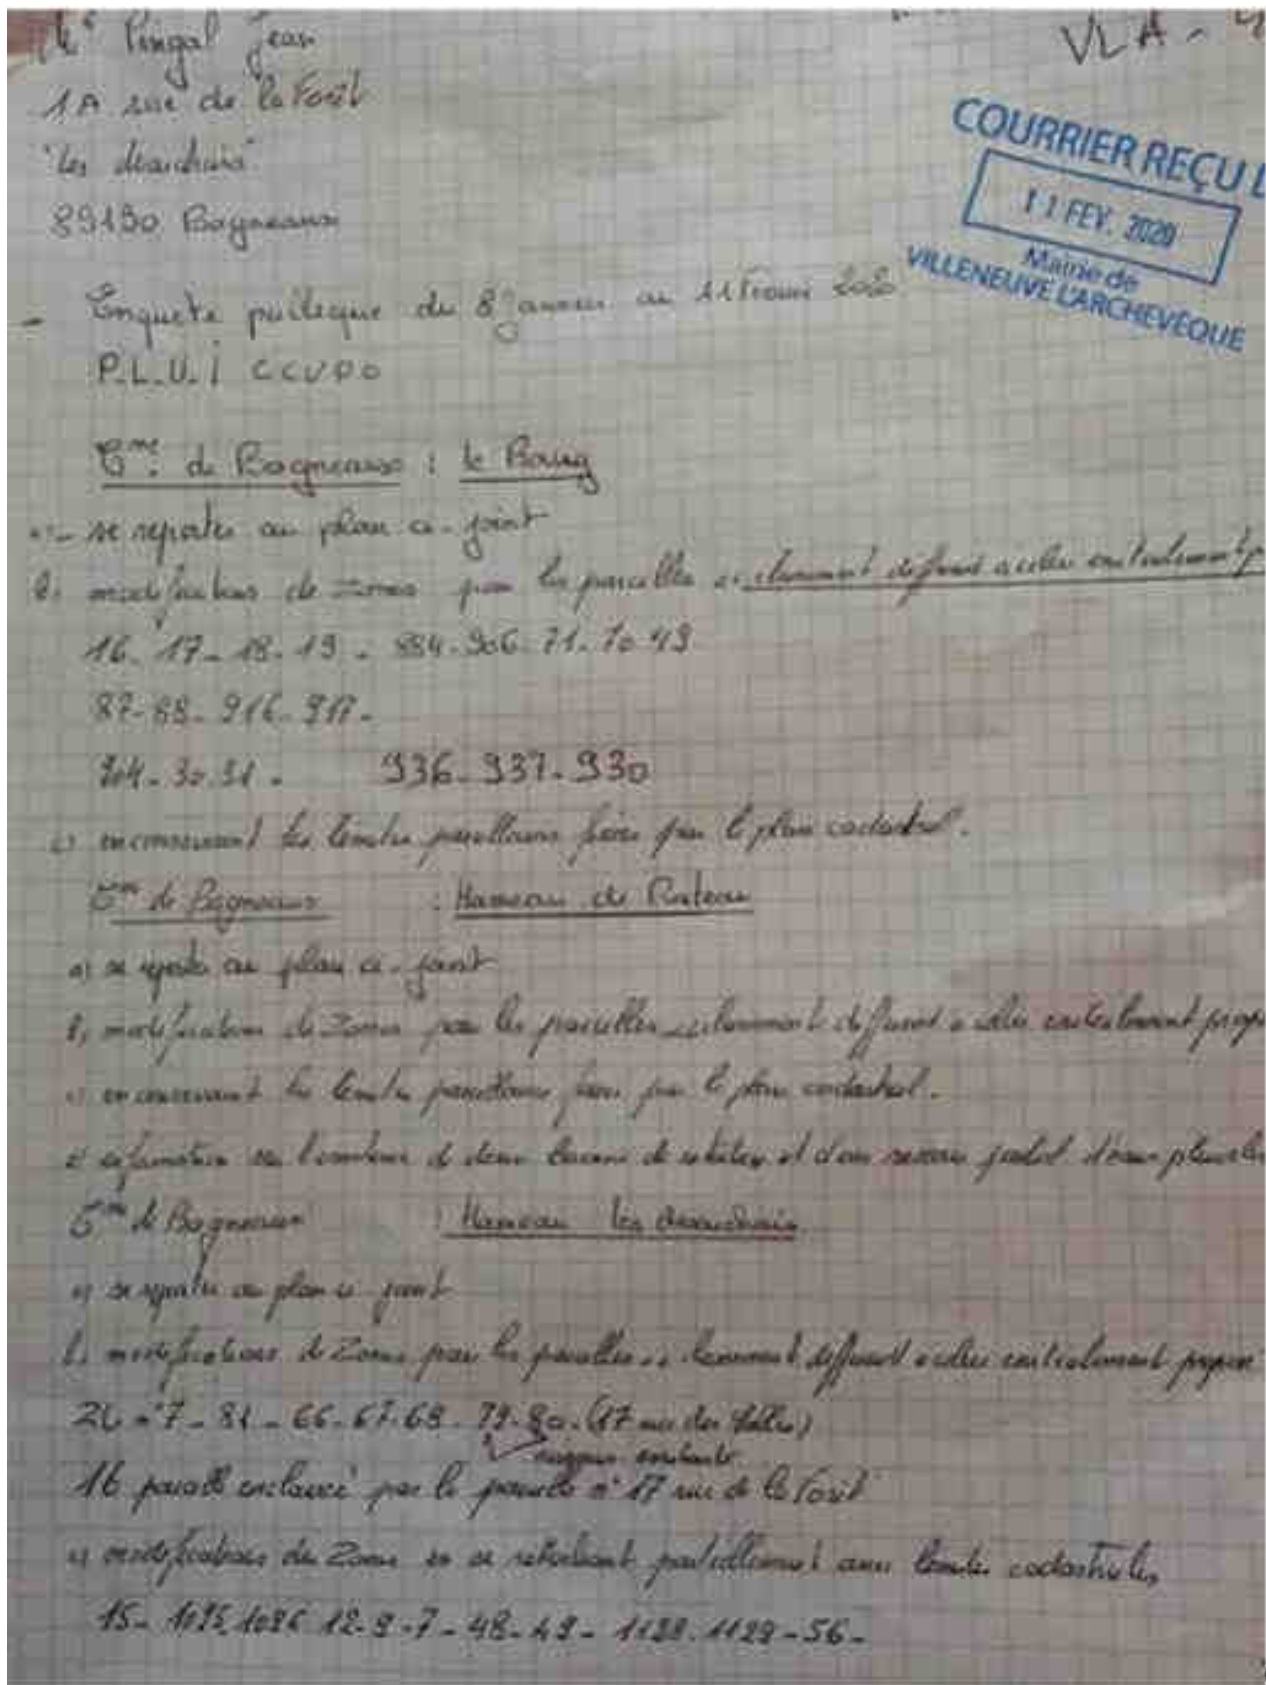 Pingal Jean
VLA -
1A rue de la Forêt
"les
89190 Bagneaux
COURRIER REÇU L
11 FEV. 2020
Mairie de
VILLENEUVE L'ARCHEVEQUE
- Enquete publique du 8 janvier au 11 Fevrier 2020
P.L.U.i CCVPO
Cme de Bagneaux : le Bourg
- se reporter au plan ci-joint
b) modifications de Zones pour les parcelles ci-dessous différent à celles initialement p
16-17-18-19-884-906-71-70-49
87-88-916-917-
904-30-31- 936-937-930
c) en conservant les limites parcellaires fixées par le plan cadastral.
Cme de Bagneaux : Hameau de Rateau
a) se reporter au plan ci-joint
b) modifications de Zones pour les parcelles différent à celles initialement propo
c) en conservant les limites parcellaires fixées par le plan cadastral.
d) information sur l'existence de deux bassins de rétention et d'un réseau d'eaux pluviales
Cme de Bagneaux : Hameau les
a) se reporter au plan ci joint
b) modifications de Zones pour les parcelles différent à celles initialement propos
7-81-66-67-68-79-80-(17 rue des
16 parcelle enclavée par la parcelle n° 17 rue de la Forêt
c) modifications de Zones en se rattachant partiellement aux limites cadastrales
15-1095-1096 12-9-7-48-49-1128-1129-56-